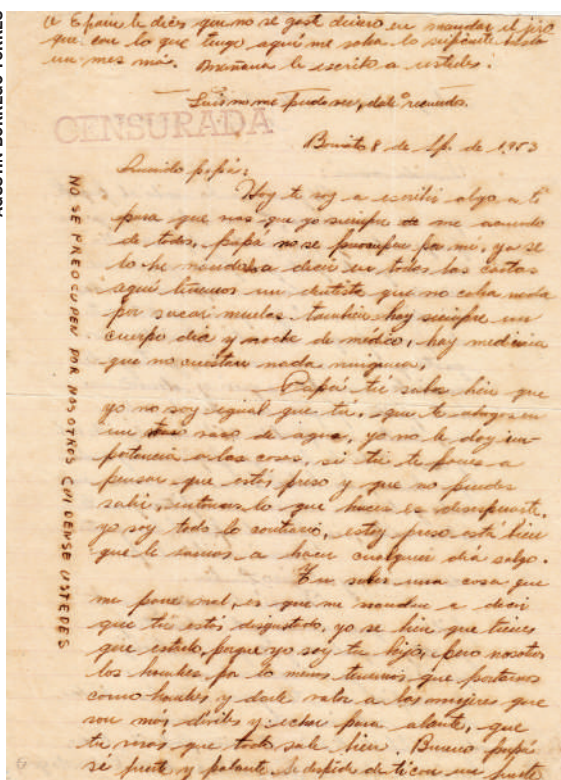 a Efraín le dices que no se gaste dinero en mandar el jiro
que con lo que tengo aquí me sobra lo suficiente hasta
un mes más. Mañana le escribo a ustedes.
Luis no me pudo ver, dale recuerdos.
CENSURADA
8 de Sp. de 1953
Querido papá:
Hoy te voy a escribir algo a ti
para que veas que yo siempre de me acuerdo
de todos, papá no se preocupe por mi, ya se
lo he mandado a decir en todas las cartas
aquí tenemos un dentista que no cobra nada
por sacar muelas. también hay siempre un
cuerpo día y noche de médico, hay medicina
que no cuestan nada ninguna.
Papá tú sabes bien que
yo no soy igual que tú, que te ahogas en
un vaso de agua, yo no le doy im-
portancia a las cosas, si tú te pones a
pensar que estás preso y que no puedes
salir, entonces lo que haces es desesperarte,
yo soy todo lo contrario, estoy preso está bien
que le vamos a hacer cualquier día salgo.
Tu sabes una cosa que
me pone mal, es que me mandan a decir
que tú estás disgustado, yo se bien que tienes
que estarlo, porque yo soy tu hijo, pero nosotros
los hombres por lo menos tenemos que portarnos
como hombres y darle valor a las mujeres que
son más débiles y echar para alante, que
tu verás que todo sale bien. Bueno papá
se fuerte y palante. Se despide de ti con un fuerte
NO SE PREOCUPEN POR NOSOTROS CUIDENSE USTEDES